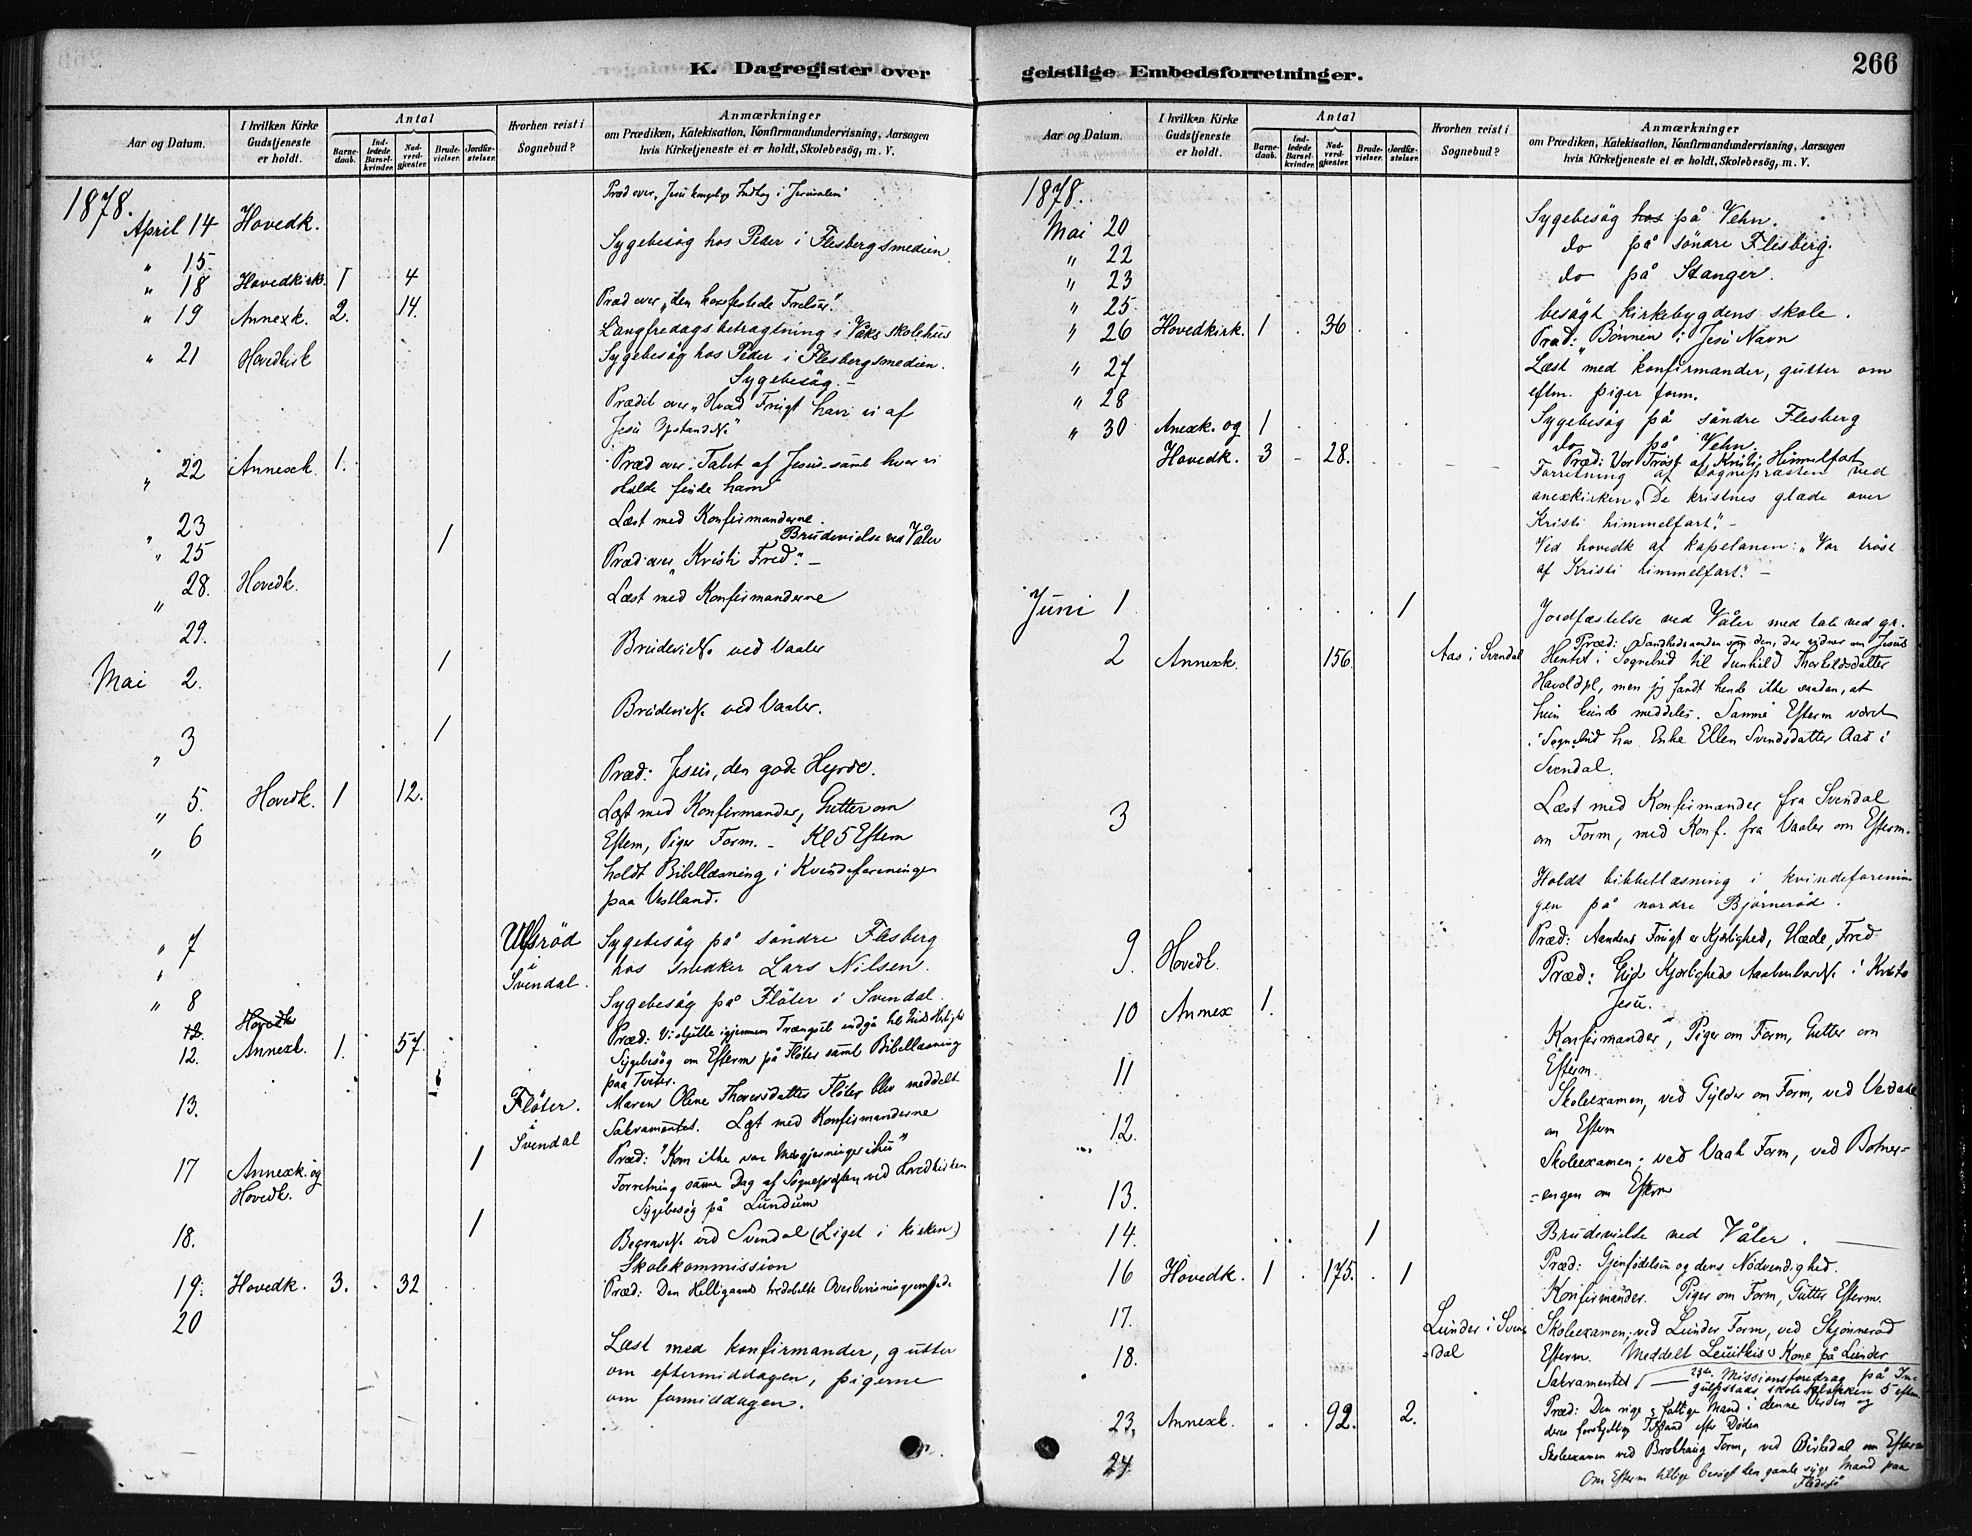 K. Dagregister over
Aar og Datum.
I hvilken Kirke Gudstjeneste er holdt.
Antal
Barnedaab.
Indledede Barselkvinder.
Nadverdgjester.
Brudevielser.
Jordfæstelser.
Hvorhen reist i Sognebud?
Anmærkninger
om Prædiken, Katekisation, Konfirmandundervisning, Aarsagen
hvis Kirketjeneste ei er holdt, Skolebesög, m. V.
1878.
Præd over "Jesu kongelige Indtog i Jerusalem"
April 14 Hovedk.
" 15. Sygebesøg hos Peder i Flesbergsmedien.
" 18 Hovedkirk. 1 4
" 19 Annexk. 2. 14. Præd over "den korsfestede Frelser."
Langfredags betragtning i Våks skolehus
" 21 Hovedkirk Sygebesøg hos Peder i Flesbergsmedien.
Sygebesøg. –
Prædik over "Hvad Frugt have vi af
Jesu Opstandn."
" 22 Annexk 1. Præd over: Tabet af Jesus samt hvor vi
skulde finde ham"
" 23 Læst med Konfirmanderne.
" 25 1 Brudevielse ved Våler
" 28. Hovedk. Præd over "Kristi Fred". –
29. Læst med Konfirmanderne
Mai 2. 1 Brudevie. ved Vaaler
" 3 1 Brudevie. ved Vaaler.
" 5. Hovedk. 1 12. Præd: Jesus, den gode Hyrde.
" 6 Læst med Konfirmander, Gutter om
Eftem, Piger Form. – Kl 5 Eftem
holdt Bibellæsning i Kvindeforeningen
paa Vestland.
" 7 Ulfsrød Sygebesøg på søndre Flesberg
i Svendal. hos snedker Lars Nilsen.
" 8 Sygebesøg på Fløter i Svendal.
12. Hovedk
12. Annexk. 1. 57. Præd: Vi skulle igjennem Trængsel indgå til Guds Herlighed
Sygebesøg om Efterm på Fløter samt Bibellæsning
paa Tveter.
13. Fløter. i Svendal Maren Oline Thoresdatter Fløter blev meddelt
Sakramentet. Læst med Konfirmanderne
17 Annexk. og Hovedk. 1 Præd: "Kom ikke vore Misgjerninger ihu"
Forretning samme Dag af Sognepresten ved Hovedkirken
Sygebesøg på Lundum
18. 1 Begravels. ved Svendal (Liget i kirken)
Skolekommission
19. Hovedk. 3. 32 Præd: Den Helligaands tredobelte Overbevisningsembede
20 Læst med konfirmander, gutter
om eftermiddagen, pigerne
om formiddagen.
geistlige Embedsforretninger.
266
Aar og Datum.
I hvilken Kirke Gudstjeneste er holdt.
Antal
Barnedaab.
Indledede Barselkvinder.
Nadverdgjester.
Brudevielser.
Jordfæstelser.
Hvorhen reist i Sognebud?
Anmærkninger
om Prædiken, Katekisation, Konfirmandundervisning, Aarsagen
hvis Kirketjeneste ei er holdt, Skolebesög, m. V.
1878.
Mai 20 Sygebesøg hos på Vehn.
" 22 do på søndre Flesberg.
" 23 do på Stanger.
" 25 besøgt kirkebygdens skole.
" 26 Hovedkirk. 1 36 Præd: "Bønnen i Jesu Navn
" 27 Læst med konfirmander, gutter om
eftm. piger form.
" 28 Sygebesøg på søndre Flesberg
do på Vehn.
" 30 Anexk. og 1
Hovedk. 3 28. Præd: Vor Trøst af Kristi Himmelfart
Forretning af sognepræsten ved
anexkirken "De kristnes glæde over
Kristi himmelfart". –
Ved hovedk af kapelanen: "Vor trøst
af Kristi himmelfart". –
Juni 1 1 Jordfæstelse ved Våler med tale ved gr.
2 Annexk. 156 Aas i Svendal Præd: Sandhedsanden som den, der vidner om Jesus
Hentet i Sognebud til Gunhild Thorkildsdatter
Havoldpl, men jeg fandt hende ikke saadan, at
hun kunde meddeles. Samme Efterm været
i Sognebud hos Enke Ellen Svendsdatter Aas i
Svendal.
3 Læst med Konfirmander fra Svendal
om Form, med Konf. fra Vaaler om Efterm.
Holdt bibellæsning i kvindeforenin-
gen på nordre Bjørnerød.
9. Hovedk. Præd: Aandens Frugt er Kjærlighed, Glæde, Fred
10 Annex 1. Præd: Guds Kjærligheds Aabenbarelse i Kristo
Jesu.
11 Konfirmander, Piger om Form, Gutter om
Efterm.
12. Skoleexamen, ved Gylder om Form, ved Vesdal
om Efterm
13. Skoleexamen; ved Vaak Form, ved Botner-
engen om Efterm
14. 1 Brudevielse ved Våler.
16 Hovedk. 1 175. 1 Præd: Gjenfødelsen og dens Nødvendighed.
17. Konfirmander. Piger om Form, Gutter Efterm.
18. Lunder i Sven-dal Skoleexamen; ved Lunder Form, ved Skjønnerød
Efterm. Meddelt Kone på Lunder
Sakramentet. – 23de: Missionsforedrag på
skole klokken 5 eftm
23, Annexk. 92. 2. Præd: Den rige & fattige Mand i denne Verden og
deres forskjellige Tilstand efter Døden
24 Skoleexamen ved Brothaug Form, ved Birkedal om Efterm
Om Efterm tillige besøgt den gamle syge Mand paa